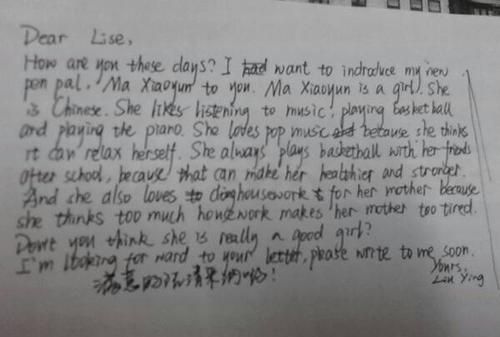 Dear Lise,
How are you these days? I had want to indroduce my new
pen pal, Ma Xiaoyun to you. Ma Xiaoyun is a girl. She
is Chinese. She likes listening to music, playing basketball
and playing the piano. She loves pop music and because she thinks
it can relax herself. She always plays basketball with her friends
after school, because that can make her healthier and stronger.
And she also loves to doing housework for her mother because
she thinks too much housework makes her mother too tired.
Don't you think she is really a good girl?
I'm looking for ward to your letter, please write to me soon.
Yours,
Liu Ying
满意的话请采纳哟!